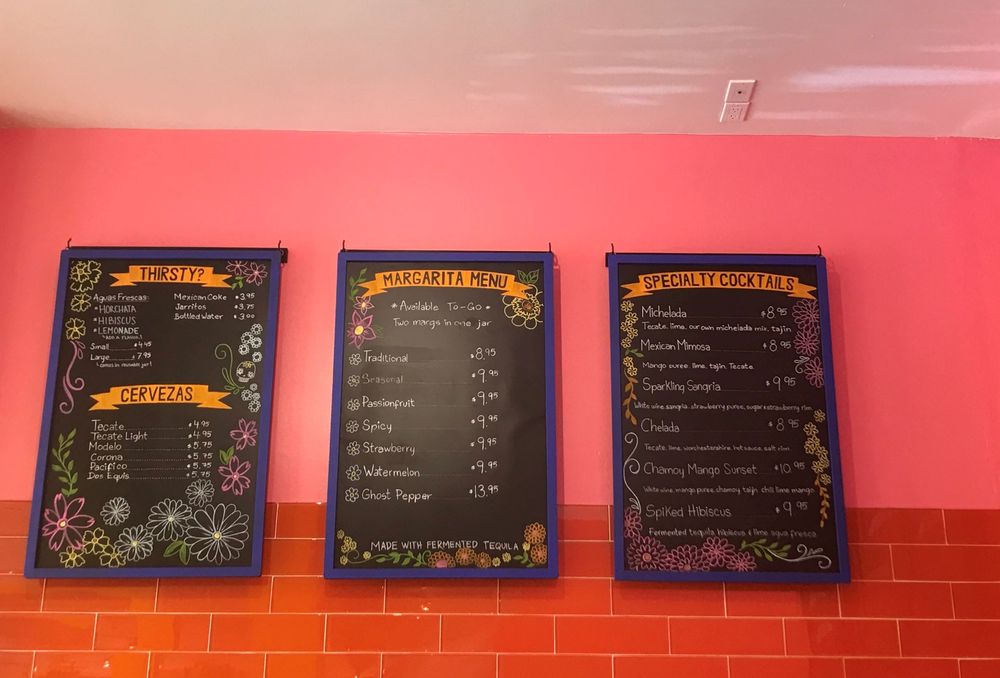 THIRSTY?
Aguas Frescas:
*HORCHATA
*HIBISCUS
*LEMONADE
Small $4.95
Large $7.95
Mexican Coke $3.95
Jarritos $3.75
Bottled Water $3.00
CERVEZAS
Tecate $4.95
Tecate Light $4.95
Modelo $5.75
Corona $5.75
Pacifico $5.75
Dos Equis $5.75
MARGARITA MENU
*Available To-Go*
Two margs in one jar
Traditional $8.95
Seasonal $9.95
Passionfruit $9.95
Spicy $9.95
Strawberry $9.95
Watermelon $9.95
Ghost Pepper $13.95
MADE WITH FERMENTED TEQUILA
SPECIALTY COCKTAILS
Michelada $8.95
Tecate, lime, our own michelada mix, tajin
Mexican Mimosa $8.95
Mango puree, lime, tajin, Tecate
Sparkling Sangria $9.95
White wine, sangria, strawberry puree, sugar & strawberry rim
Chelada $8.95
Tecate, lime, worchestershire, hot sauce, salt rim
Chamoy Mango Sunset $10.95
White wine, mango puree, chamoy, taijn, chili lime mango
Spiked Hibiscus $9.95
Fermented tequila, hibiscus & lime agua fresca